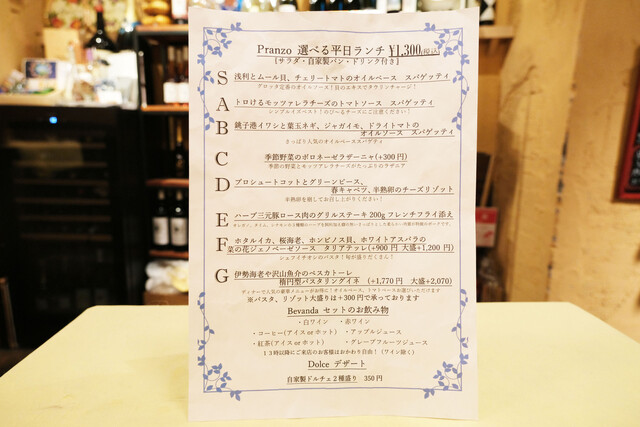 Pranzo 選べる平日ランチ ¥1,300(税込)
(サラダ・自家製パン・ドリンク付き)
S 浅利とムール貝、チェリートマトのオイルベース スパゲッティ
グロッタ定番のオイルソース!貝のエキスでタウリンチャージ!
A トロけるモッツァレラチーズのトマトソース スパゲッティ
シンプルイズベスト!のび〜るチーズにご注意ください!
B 銚子港イワシと葉玉ネギ、ジャガイモ、ドライトマトの
オイルソース スパゲッティ
さっぱり人気のオイルベーススパゲティ
C 季節野菜のボロネーゼラザーニャ(+300円)
季節の野菜とモッツアレラチーズがたっぷりのラザニア
D プロシュートコットとグリーンピース、
春キャベツ、半熟卵のチーズリゾット
半熟卵を崩してお召し上がりください!
E ハーブ三元豚ロース肉のグリルステーキ 200g フレンチフライ添え
F ホタルイカ、桜海老、ホンビノス貝、ホワイトアスパラの
菜の花ジェノベーゼソース タリアテッレ(+900円 大盛+1,200円)
シェフイチオシのパスタ!旬が盛りだくさん!
G 伊勢海老や沢山魚介のペスカトーレ
楕円型パスタリングイネ (+1,770円 大盛+2,070)
ディナーで人気の豪華メニューがお得に!オイルベース、トマトベースお選びいただけます
※パスタ、リゾット大盛りは+300円で承っております
Bevanda セットのお飲み物
・白ワイン ・赤ワイン
・コーヒー(アイス or ホット) ・アップルジュース
・紅茶(アイス or ホット) ・グレープフルーツジュース
13時以降にご来店のお客様はおかわり自由!(ワイン除く)
Dolce デザート
自家製ドルチェ2種盛り 350円